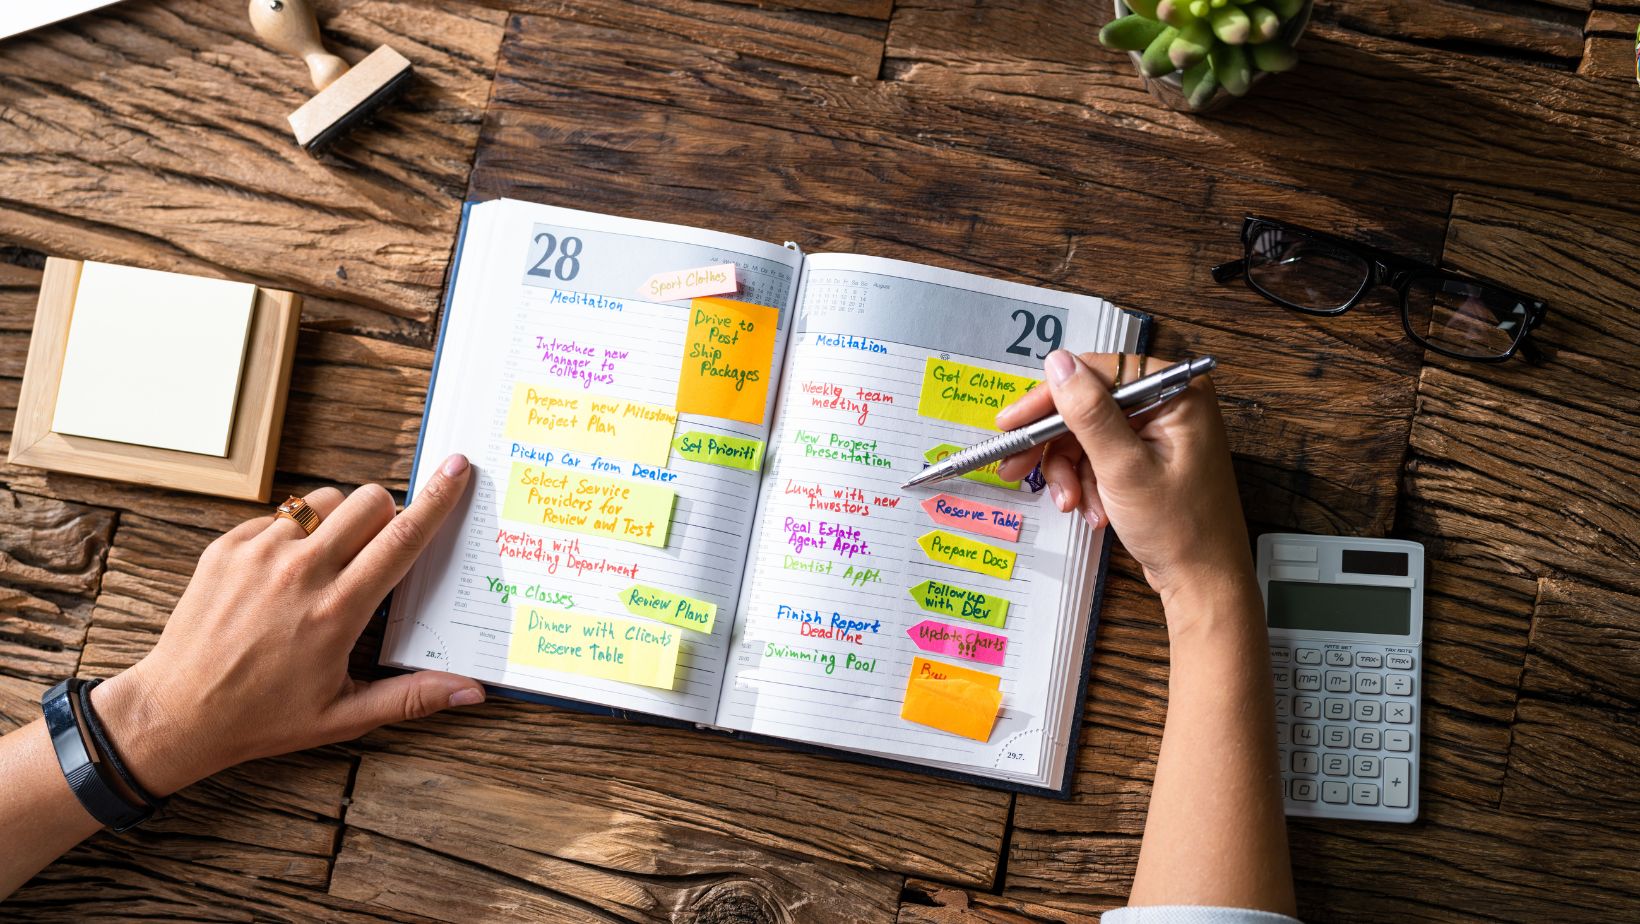 28
Sport Clothes
Meditation
Drive to
Post
Ship
Packages
Introduce new
Manager to
Colleagues
Prepare new Milestone
Project Plan
Set Prioriti
Pickup Car from Dealer
Select Service
Providers for
Review and Test
Meeting with
Marketing Department
Yoga Classes
Review Plans
Dinner with Clients
Reserve Table
28.7.
August
29
Meditation
Get Clothes
Chemical
Weekly team
meeting
New Project
Presentation
Lunch with new
Investors
Reserve Table
Real Estate
Agent Appt.
Prepare Docs
Dentist Appt.
Follow up
with Dev
Finish Report
Deadline
Update Charts
!!!
Swimming Pool
29.7.
√ % TAX- TAX+
MR M- M+ ÷
7 8 9 ×
4 5 6 −
1 2 3 +
0 · =